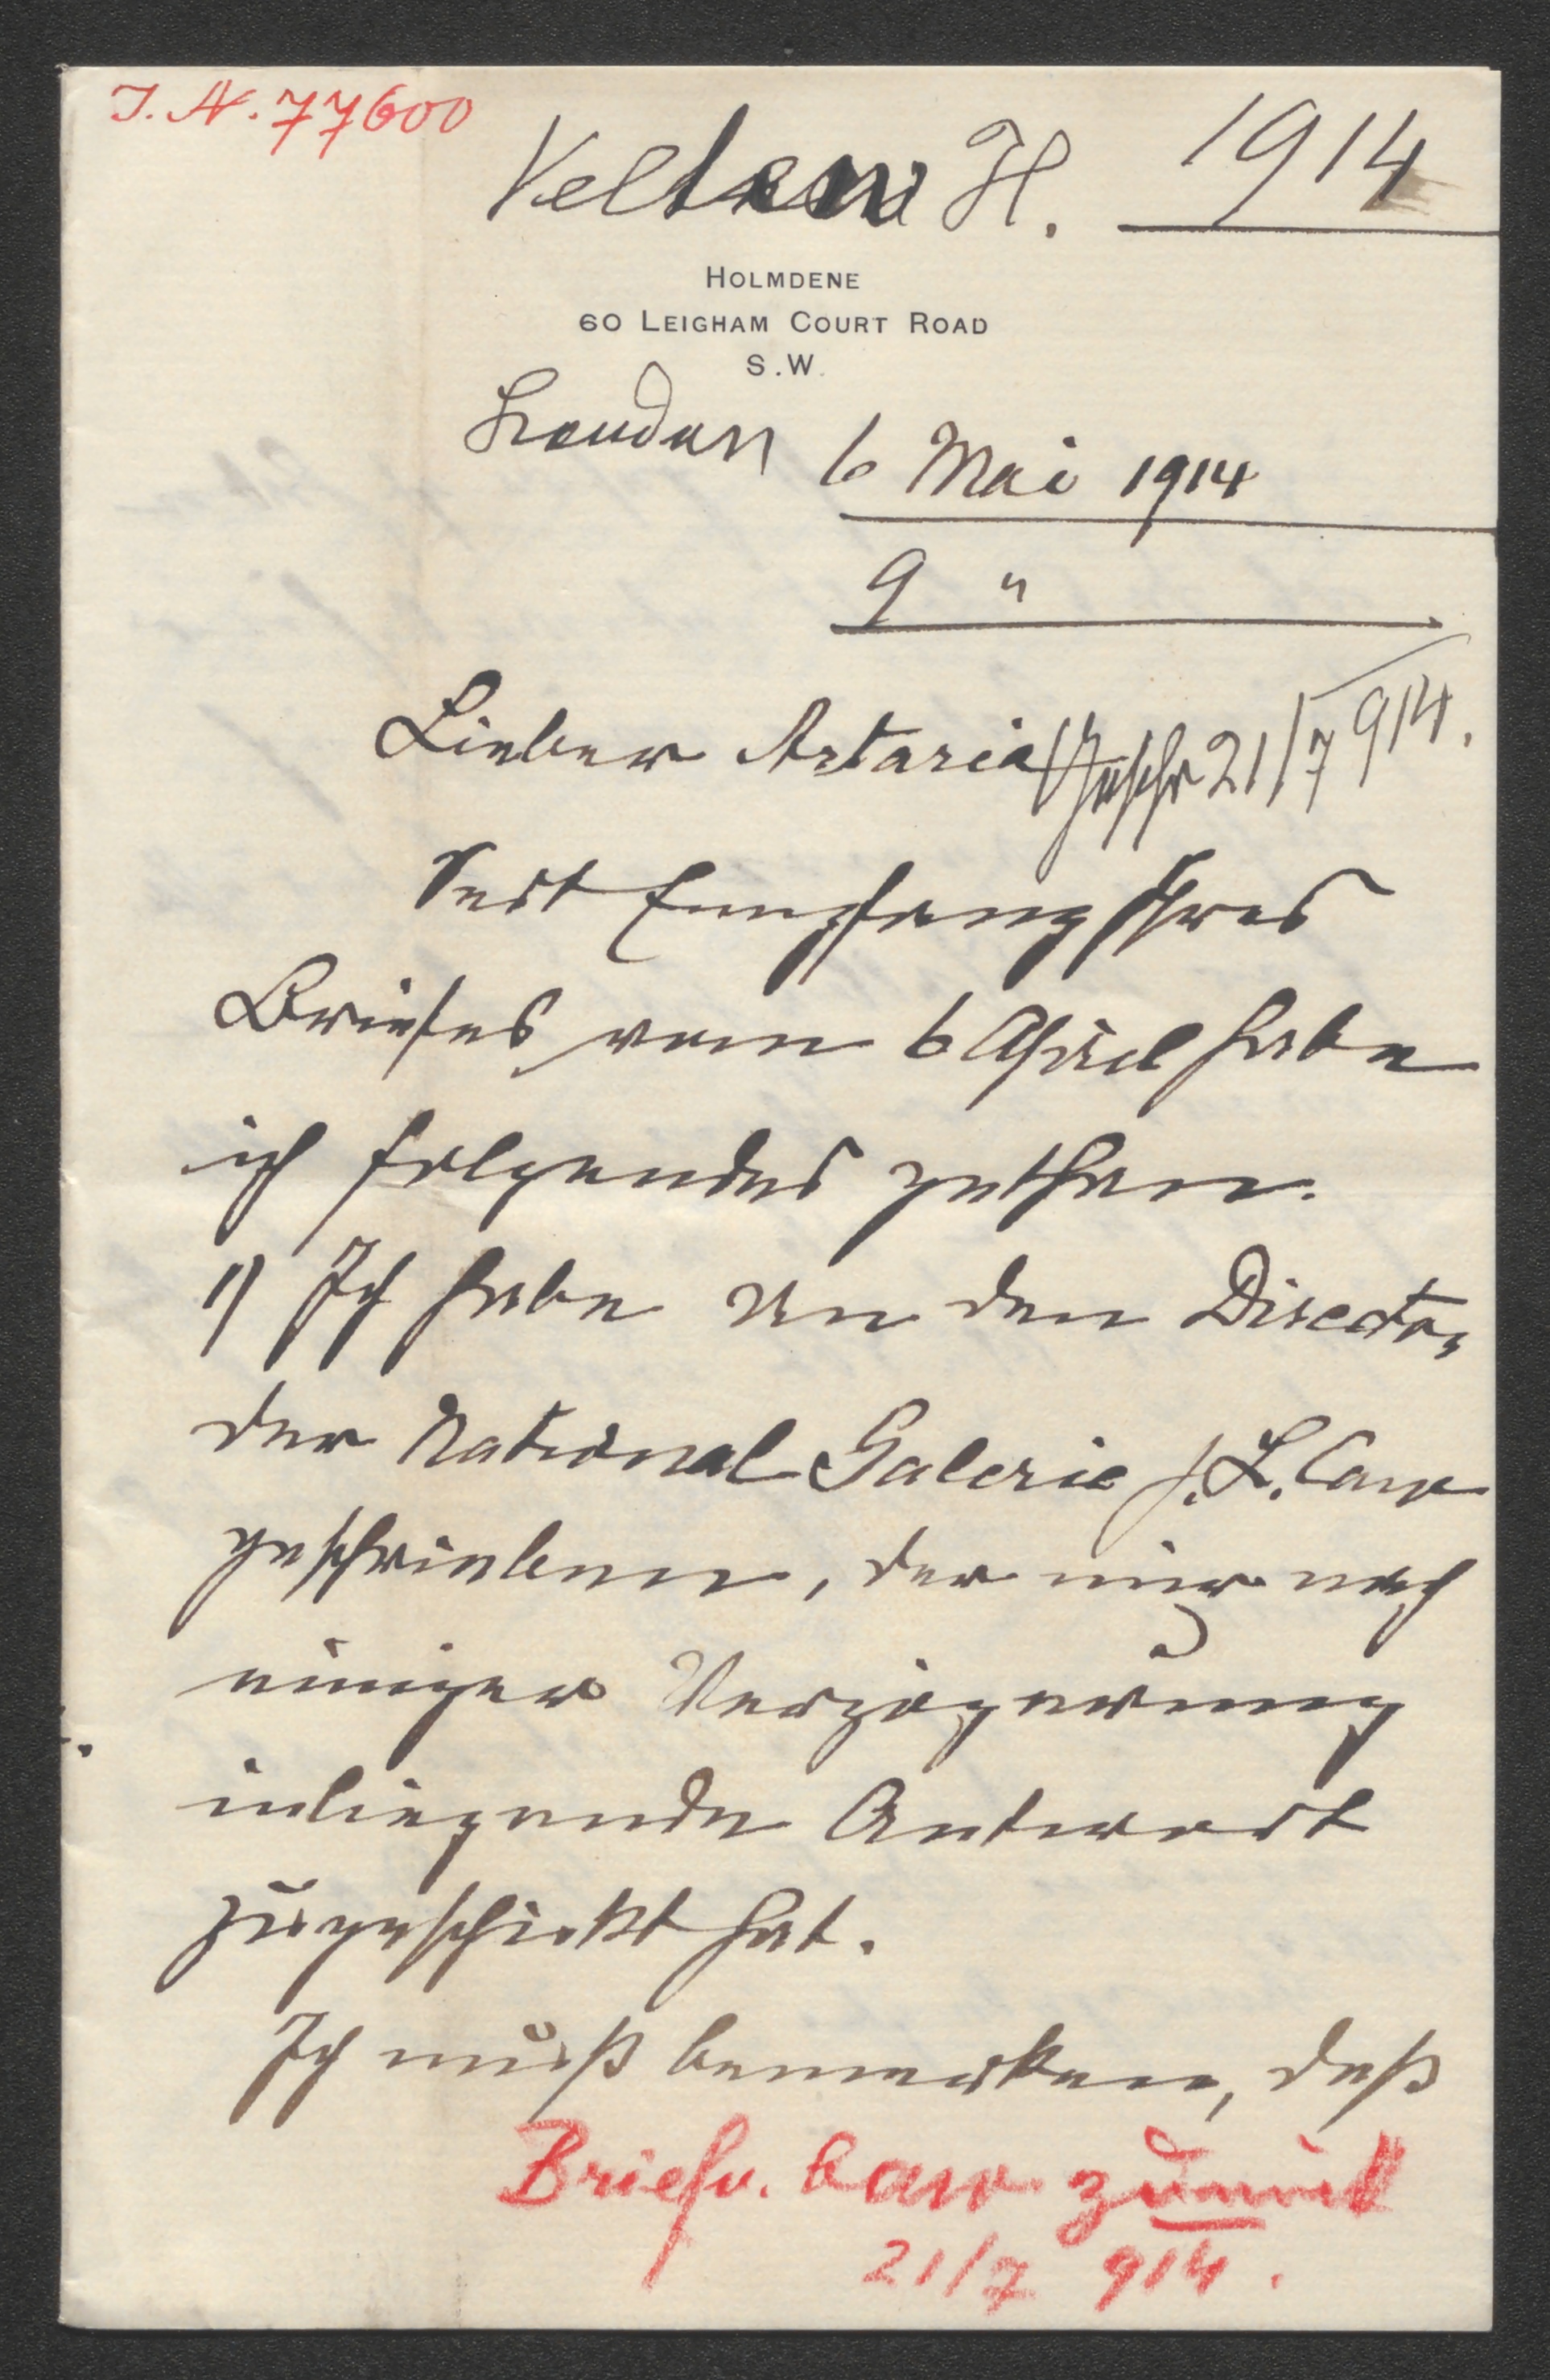 I. N. 77600
Velten H. 1914
HOLMDENE
60 LEIGHAM COURT ROAD
S.W.
London 6 Mai 1914
9 "
Lieber Artaria
Geschr 21/7 914.
Seit Empfang Ihres
Briefes vom 6 April habe
ich folgendes gethan.
1) Ich habe an den Director
der National Galerie J. L. Caw
geschrieben, der mir nach
einiger Verzögerung
inliegende Antwort
zugeschickt hat.
Ich muß bemerken, daß
Brief v. Caw zurück
21/7 914.